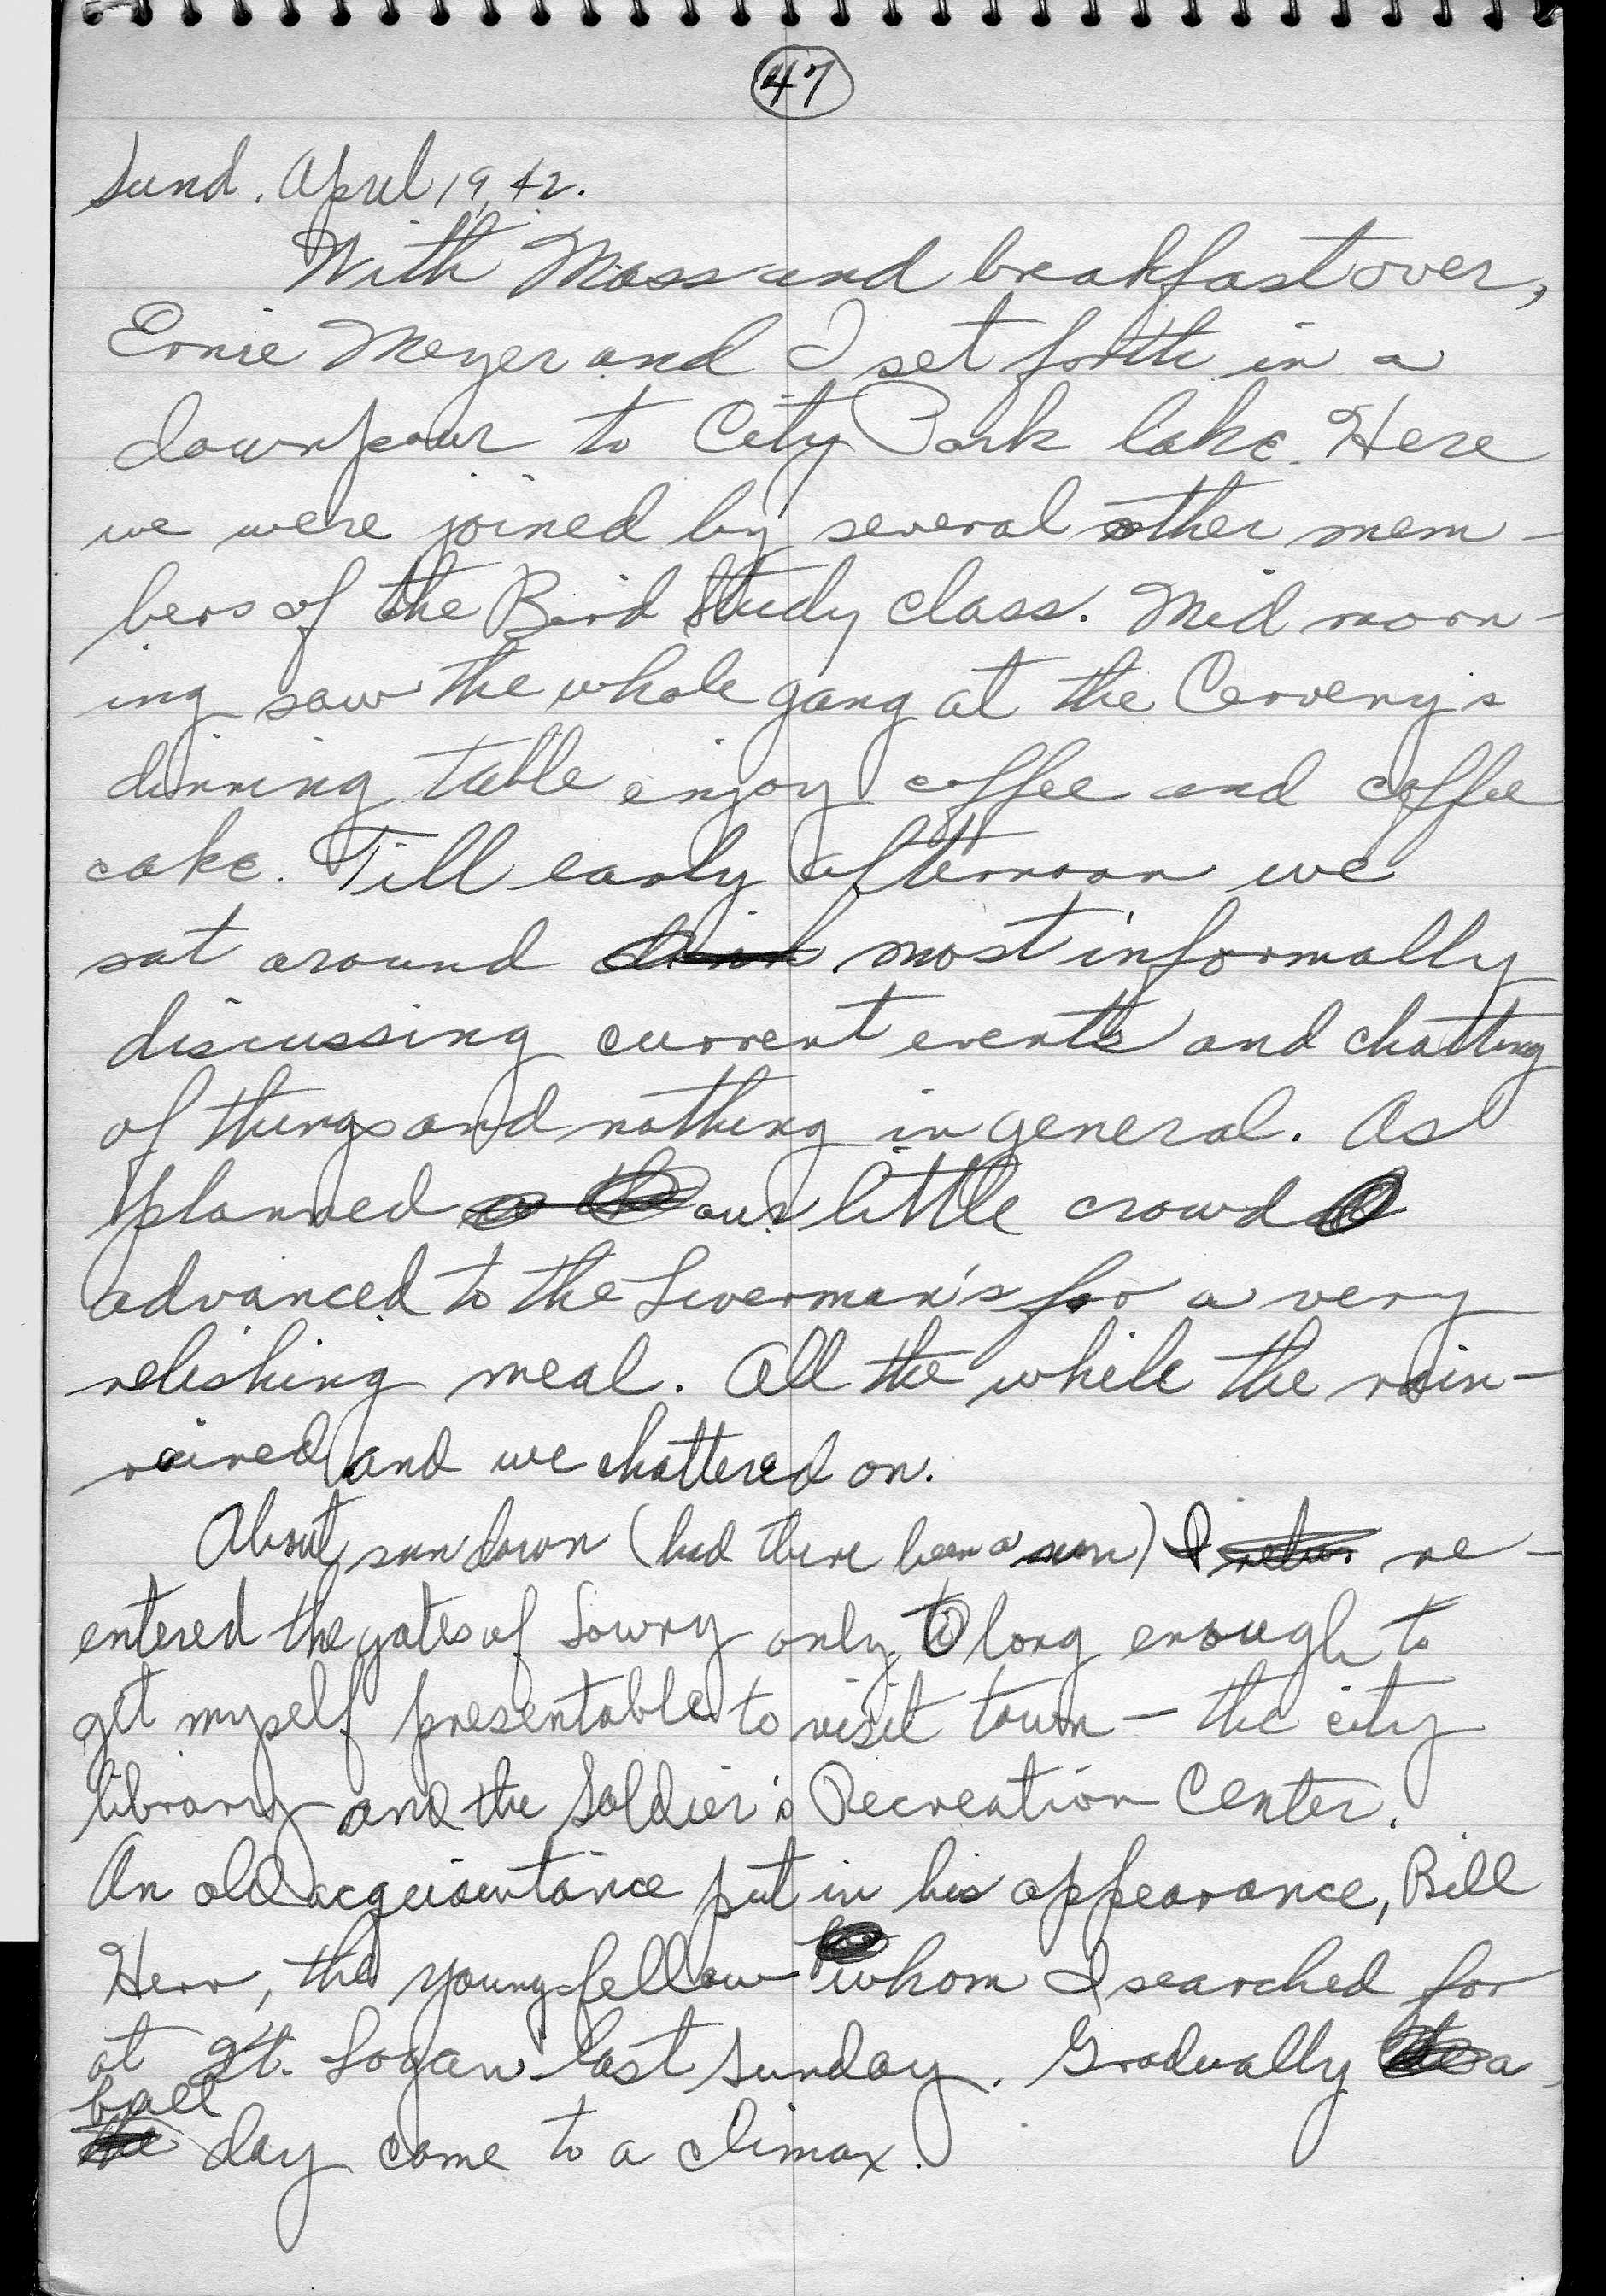 47
Sund. April 19, 42.
With Mass and breakfast over,
Ernie Meyer and I set forth in a
downpour to City Park lake. Here
we were joined by several other mem-
bers of the Bird Study class. Mid morn-
ing saw the whole gang at the Cerveny's
dinning table enjoy coffee and coffee
cake. Till early afternoon we
sat around most informally
discussing current events and chatting
of things and nothing in general. As
planned our little crowd
advanced to the Liverman's for a very
relishing meal. All the while the rain-
rained and we chattered on.
About sundown (had there been a sun) I re-
entered the gates of Lowry only long enough to
get myself presentable to visit town - the city
library and the Soldier's Recreation Center.
An old acquaintance put in his appearance, Bill
Herr, the young fellow whom I searched for
at Ft. Logan last Sunday. Gradually a
full
day come to a climax.